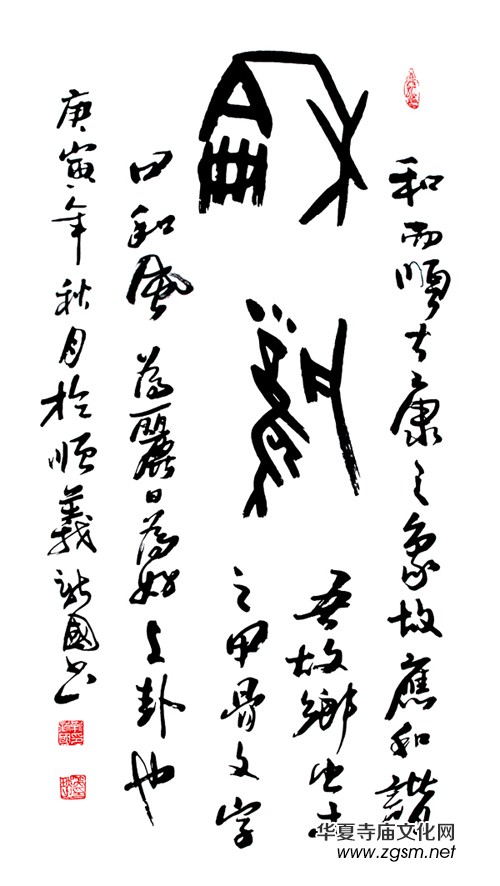 和而順康之象故應和諧
龢
吾故鄉出土
之甲骨文字
曰和風為麗日為好上卦也
庚寅年秋月於順義國書
华夏寺庙文化网
www.zgsm.net